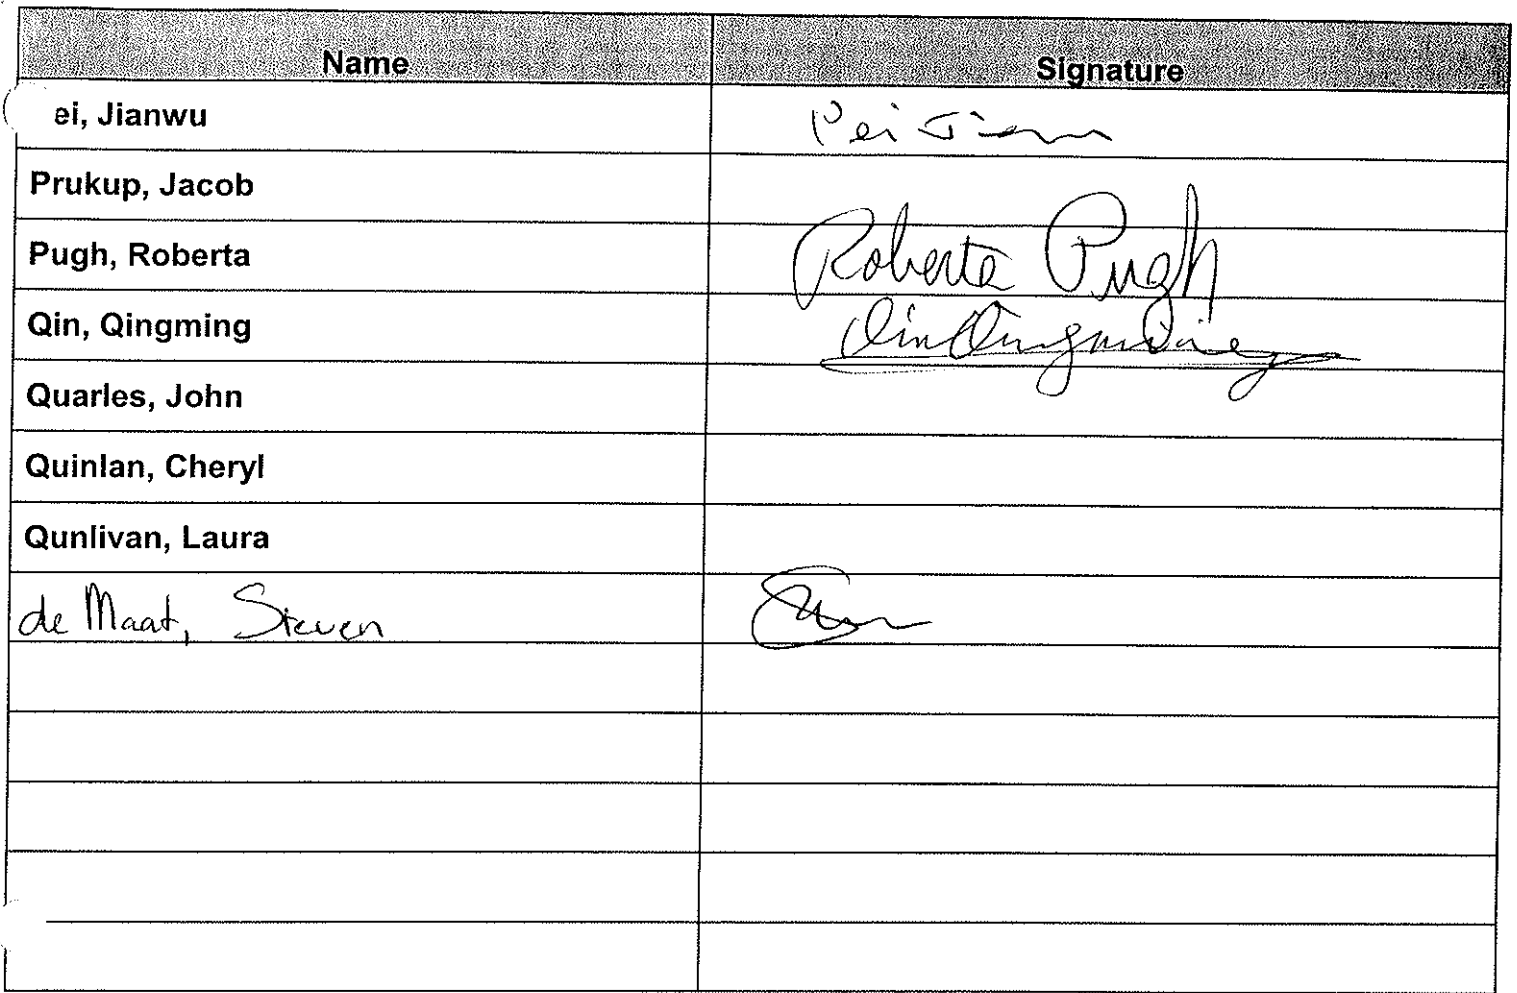 Name Signature
ei, Jianwu Pei
Prukup, Jacob
Pugh, Roberta Roberta Pugh
Qin, Qingming Qin Qingming
Quarles, John
Quinlan, Cheryl
Qunlivan, Laura
de Maat, Steven